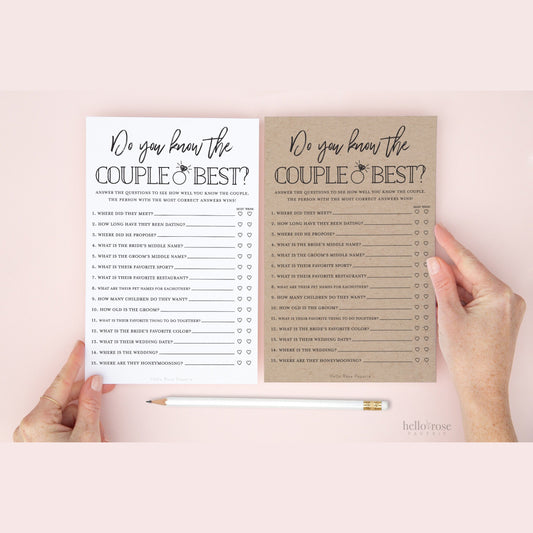 Do you know the
COUPLE BEST?
ANSWER THE QUESTIONS TO SEE HOW WELL YOU KNOW THE COUPLE.
THE PERSON WITH THE MOST CORRECT ANSWERS WINS!
1. WHERE DID THEY MEET?
2. HOW LONG HAVE THEY BEEN DATING?
3. WHERE DID HE PROPOSE?
4. WHAT IS THE BRIDE'S MIDDLE NAME?
5. WHAT IS THE GROOM'S MIDDLE NAME?
6. WHAT IS THEIR FAVORITE SPORT?
7. WHAT IS THEIR FAVORITE RESTAURANT?
8. WHAT ARE THEIR PET NAMES FOR EACHOTHER?
9. HOW MANY CHILDREN DO THEY WANT?
10. HOW OLD IS THE GROOM?
11. WHAT IS THEIR FAVORITE THING TO DO TOGETHER?
12. WHAT IS THE BRIDE'S FAVORITE COLOR?
13. WHAT IS THEIR WEDDING DATE?
14. WHERE IS THE WEDDING?
15. WHERE ARE THEY HONEYMOONING?
Hello Rose Paperie
Do you know the
COUPLE BEST?
ANSWER THE QUESTIONS TO SEE HOW WELL YOU KNOW THE COUPLE.
THE PERSON WITH THE MOST CORRECT ANSWERS WINS!
1. WHERE DID THEY MEET?
2. HOW LONG HAVE THEY BEEN DATING?
3. WHERE DID HE PROPOSE?
4. WHAT IS THE BRIDE'S MIDDLE NAME?
5. WHAT IS THE GROOM'S MIDDLE NAME?
6. WHAT IS THEIR FAVORITE SPORT?
7. WHAT IS THEIR FAVORITE RESTAURANT?
8. WHAT ARE THEIR PET NAMES FOR EACHOTHER?
9. HOW MANY CHILDREN DO THEY WANT?
10. HOW OLD IS THE GROOM?
11. WHAT IS THEIR FAVORITE THING TO DO TOGETHER?
12. WHAT IS THE BRIDE'S FAVORITE COLOR?
13. WHAT IS THEIR WEDDING DATE?
14. WHERE IS THE WEDDING?
15. WHERE ARE THEY HONEYMOONING?
Hello Rose Paperie
hello rose
PAPERIE